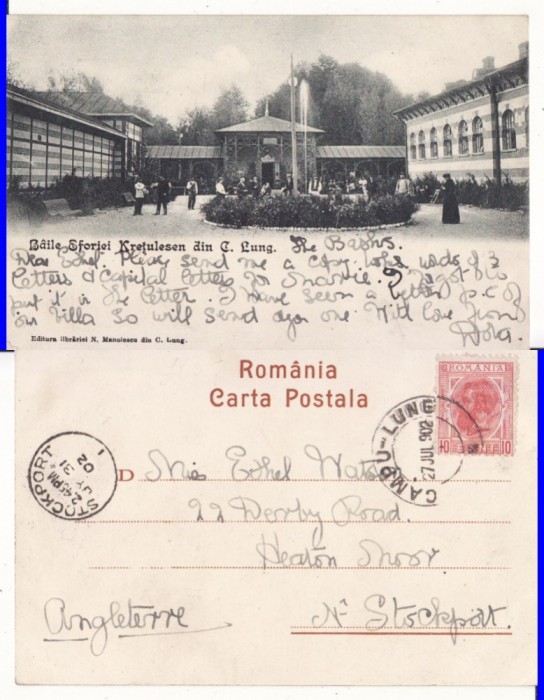 Băile Eforiei Krețulescu din C. Lung. The Baths.
Dear Ethel. Please send me a copy book words of 3
letters & Capital letters for I forgot to
put it in the letter. I have seen a better p.c. of
our Villa so will send you one. With love from
Dora.
Editura librăriei N. Manolescu din C. Lung.
România
Carta Postala
ROMANIA
10 10
CAMPU-LUNG
27 JUL 902
STOCKPORT
2.45PM
JY 31
02
D Miss Ethel Watson
22 Derby Road.
Heaton Moor
Angleterre Nr Stockport.